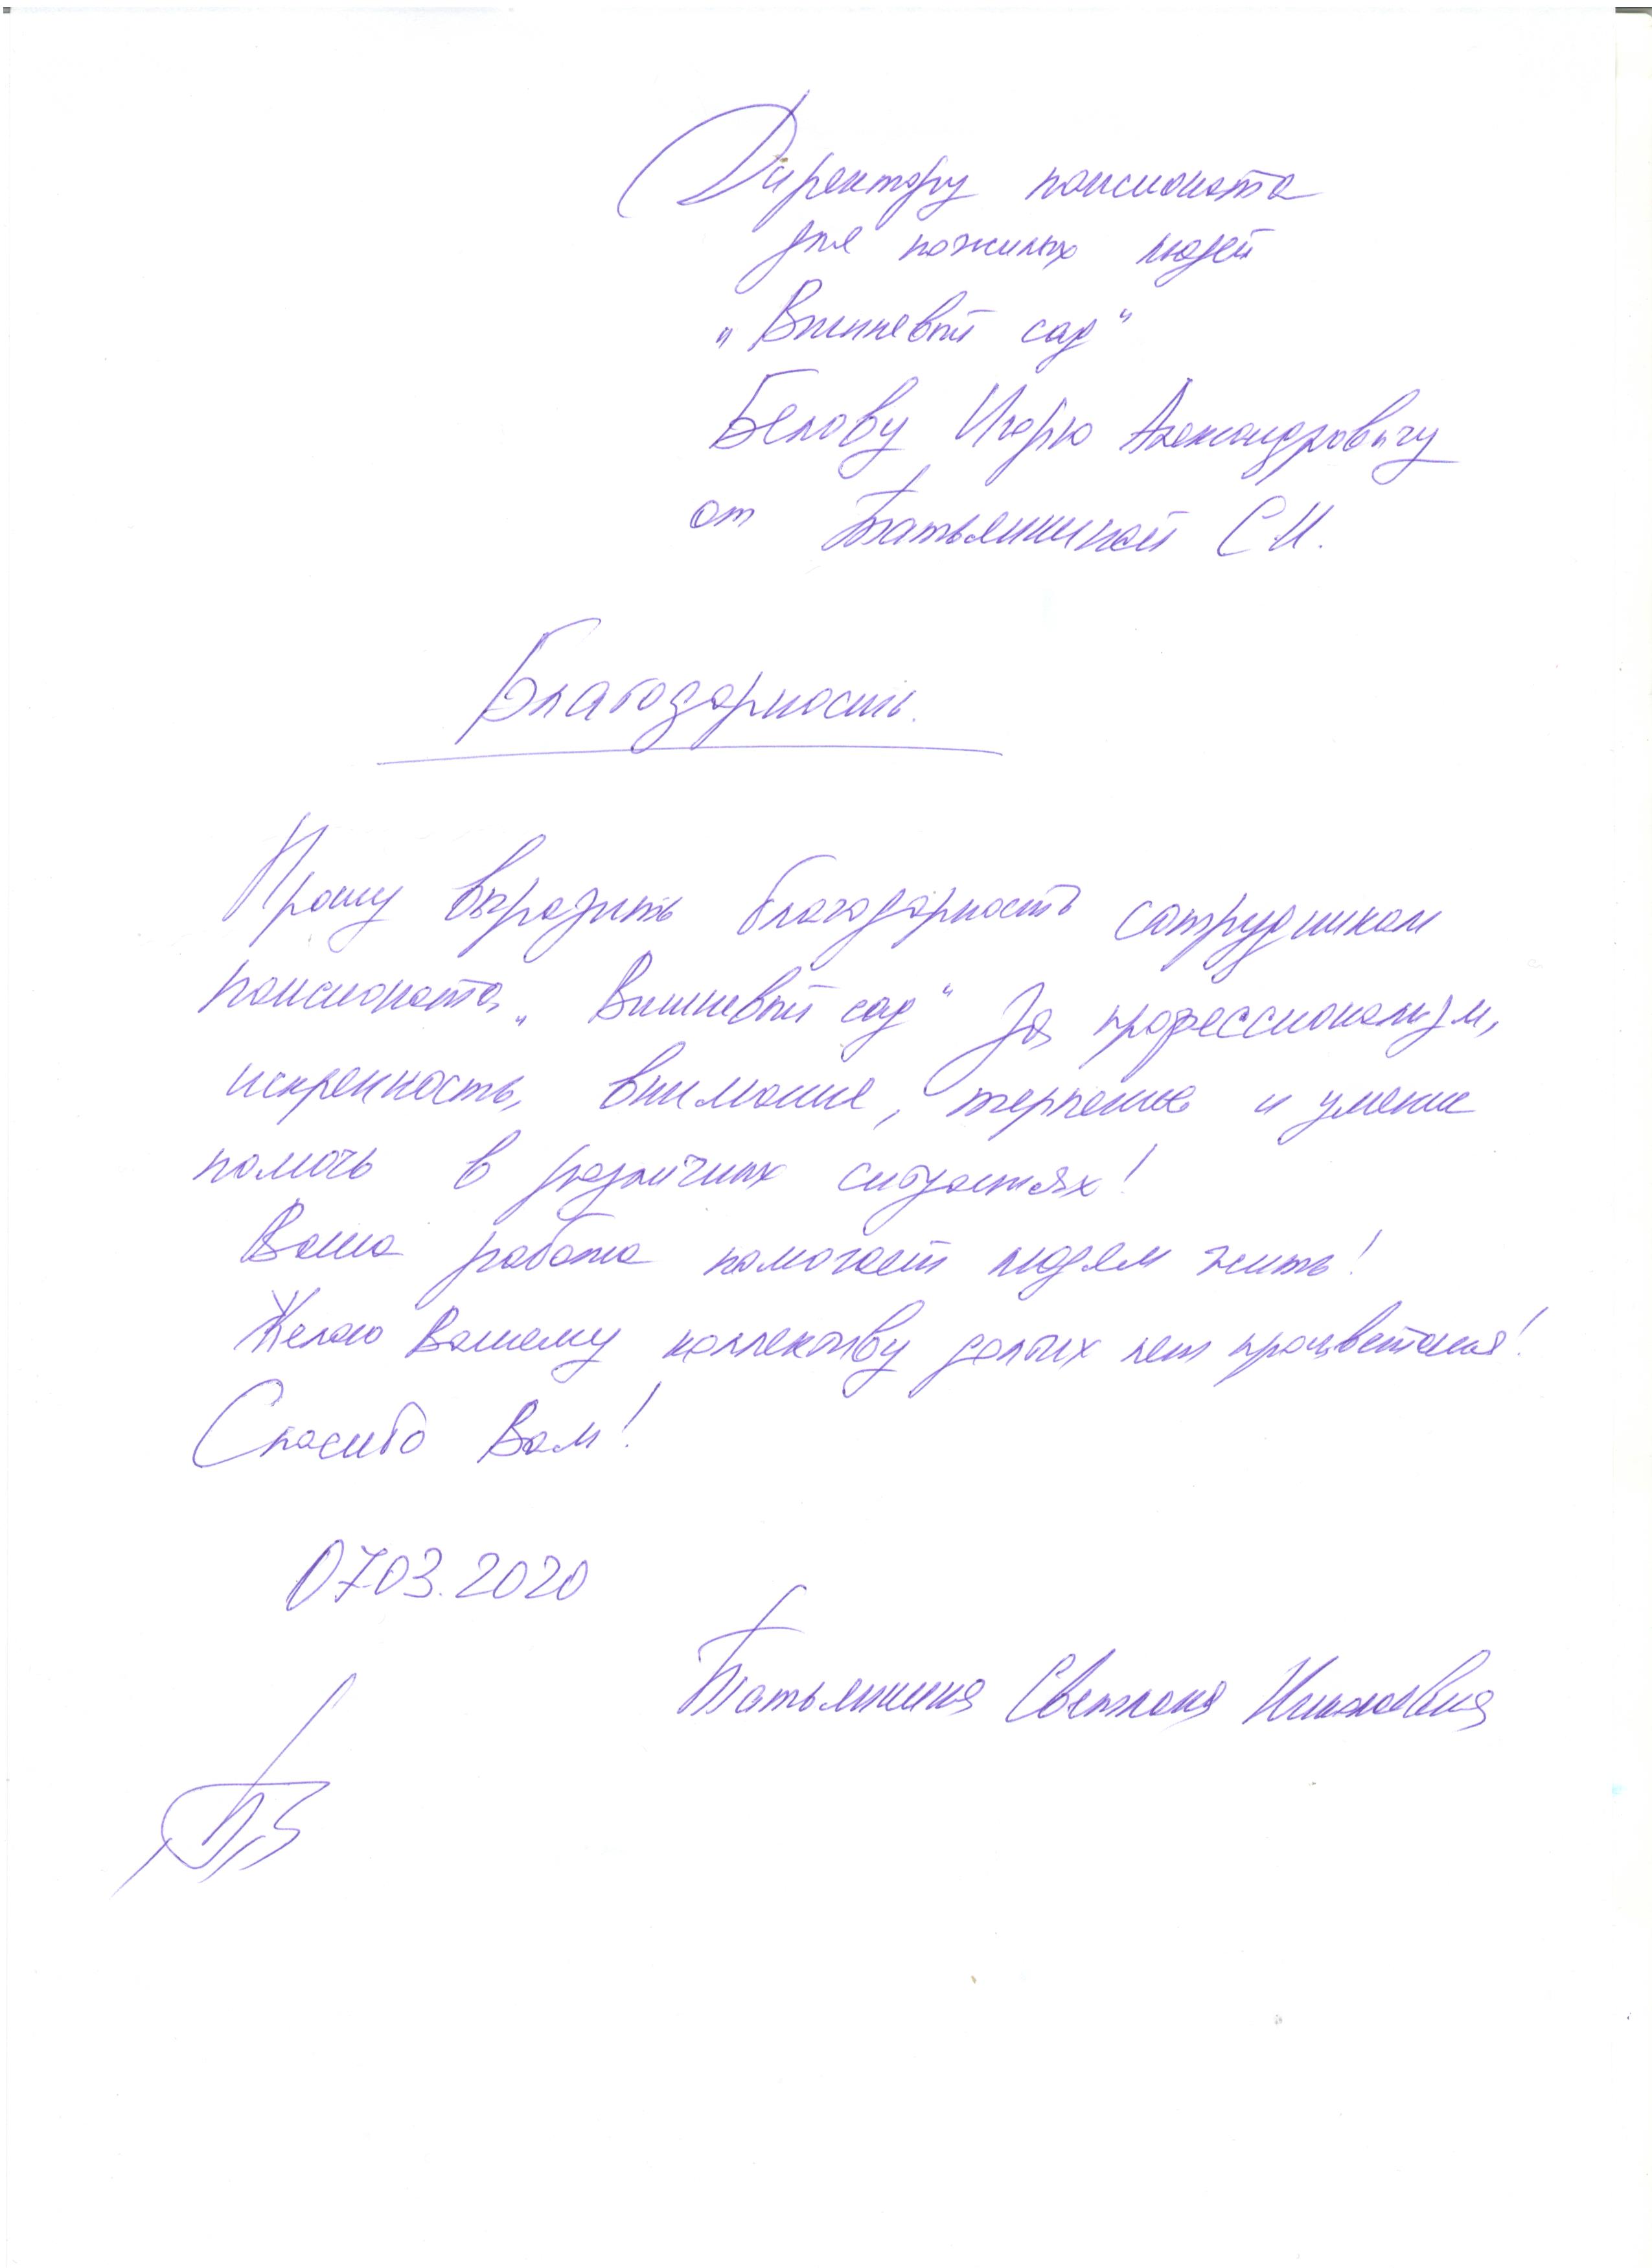 Директору пансионата
для пожилых людей
„Вишневый сад"
Белову Игорю Александровичу
от Батьяниной С.И.
Благодарность.
Прошу выразить благодарность сотрудникам
пансионата „Вишневый сад" за профессионализм,
искренность, внимание, терпение и умение
помочь в различных ситуациях!
Ваша работа помогает людям жить!
Желаю Вашему коллективу долгих лет процветания!
Спасибо Вам!
07.03.2020
Светлана